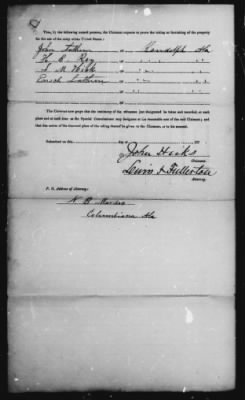 That, by the following named persons, the Claimant expects to prove the taking or furnishing of the property
for the use of the army within United States:
John Lathum of Randolph Ala
of " "
of " "
Enoch Lathum of " "
The Claimant now prays that the testimony of the witnesses just designated be taken and recorded, at such
place and at such time as the Special Commissioner may designate at the reasonable cost of the said Claimant; and
that due notice of the time and place of the taking thereof be given to the Claimant, or to his counsel.
Submitted on this day of 187
John Hicks
Claimant.
Lewin & Fullerton
Attorney.
P. O. Address of Attorney:
N. B.
Columbiana Ala